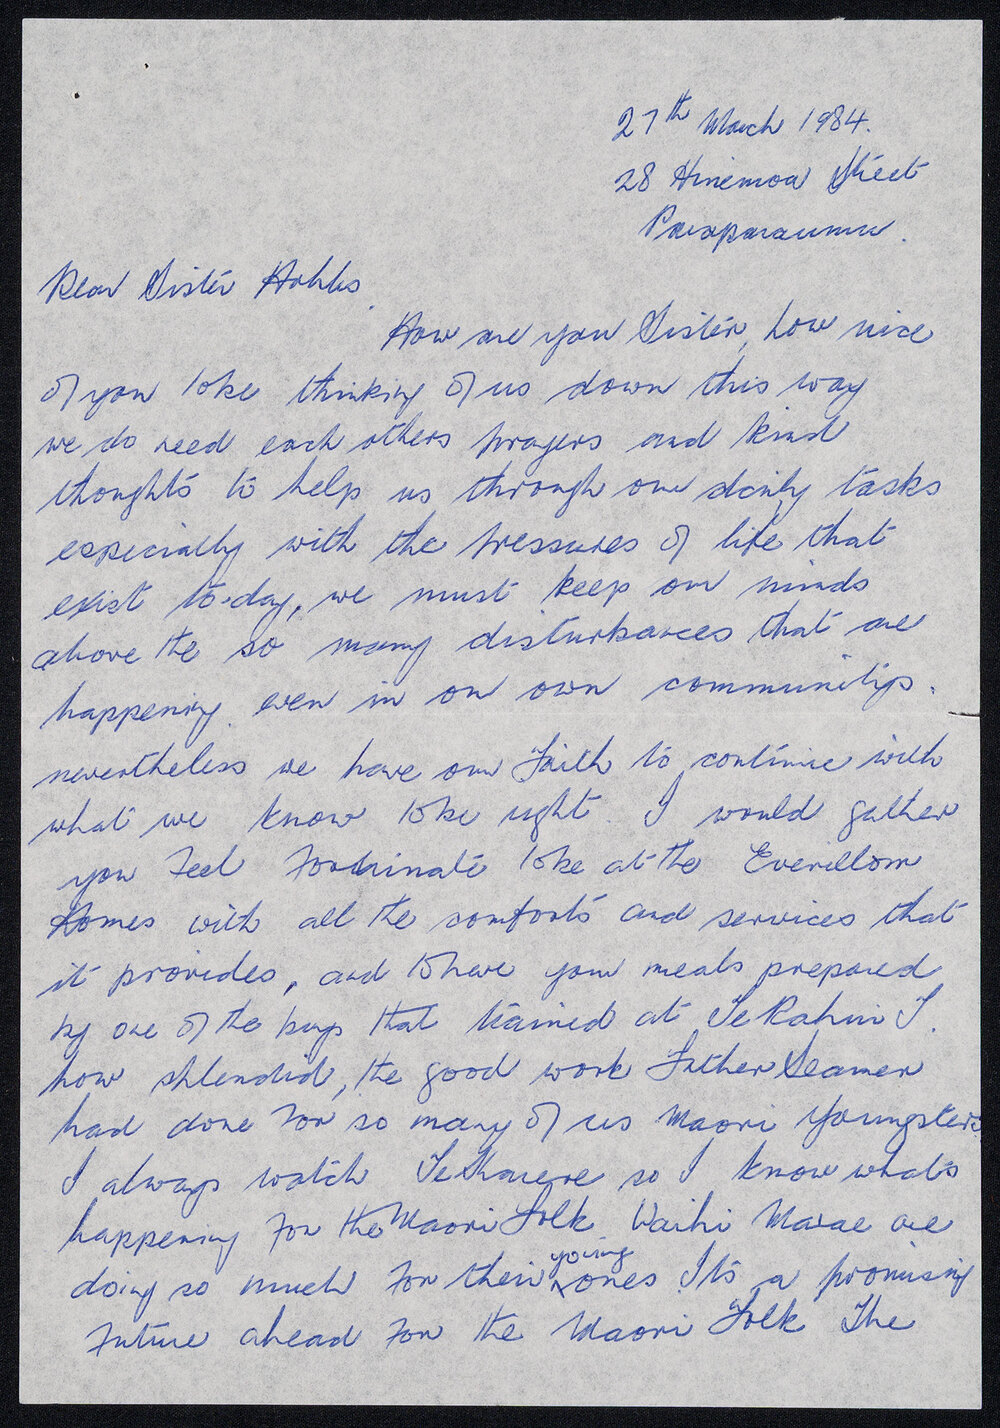 27th March 1984.
28 Hinemoa Street
Paraparaumu.
Dear Sister Hobbs
How are you Sister, how nice
of you to be thinking of us down this way
we do need each others prayers and kind
thoughts to help us through our daily tasks
especially with the pressures of life that
exist to-day, we must keep our minds
above the so many disturbances that are
happening even in our own community.
nevertheless we have our Faith to continue with
what we know to be right. I would gather
you feel fortunate to be at the
Homes with all the comforts and services that
it provides, and to have your meals prepared
by one of the boys that trained at
how splendid, the good work Father Seamer
had done for so many of us Maori Youngsters
I always watch Te Karere so I know what's
happening for the Maori Folk Waihi Marae are
doing so much for their young ones. It's a promising
future ahead for the Maori Folk The